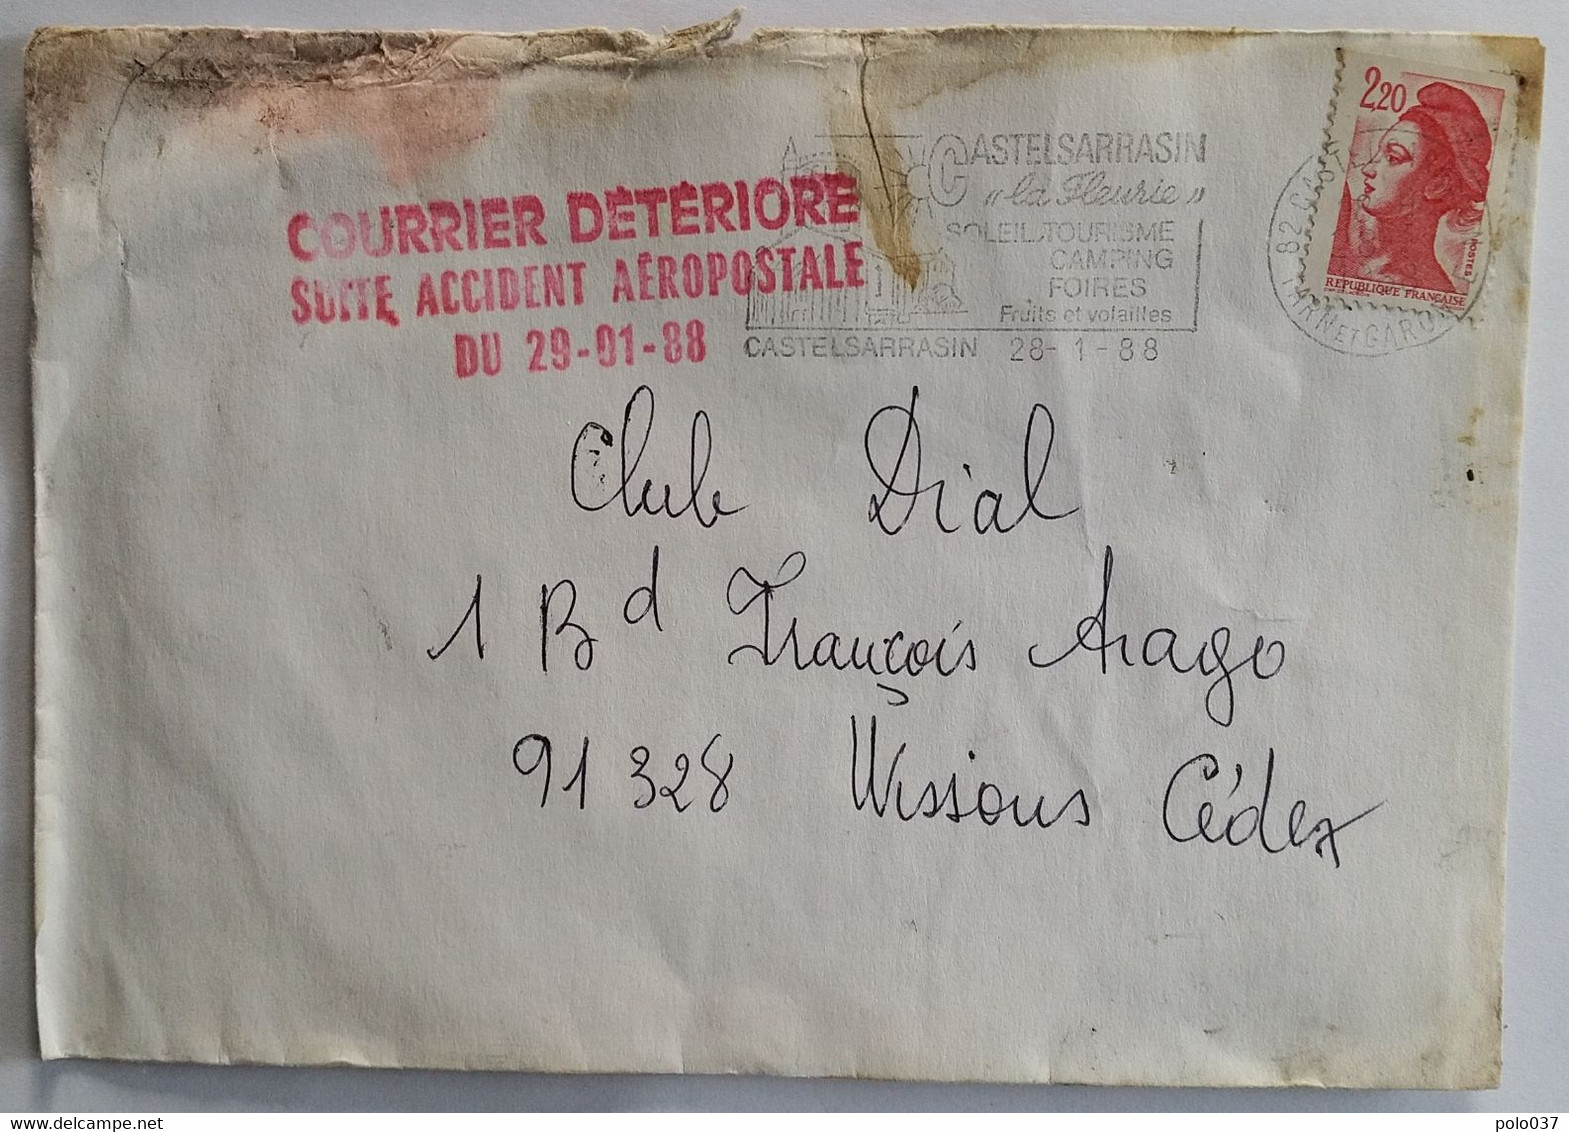 COURRIER DÉTÉRIORÉ
SUITE ACCIDENT AÉROPOSTALE
DU 29-01-88
CASTELSARRASIN
« la Fleurie »
SOLEIL.TOURISME
CAMPING
FOIRES
Fruits et volailles
CASTELSARRASIN 28- 1 - 88
82
TARN ET GAR
2,20
POSTES
REPUBLIQUE FRANÇAISE
Club Dial
1 Bd François Arago
91 328 Wissous Cédex
www.delcampe.net
polo037